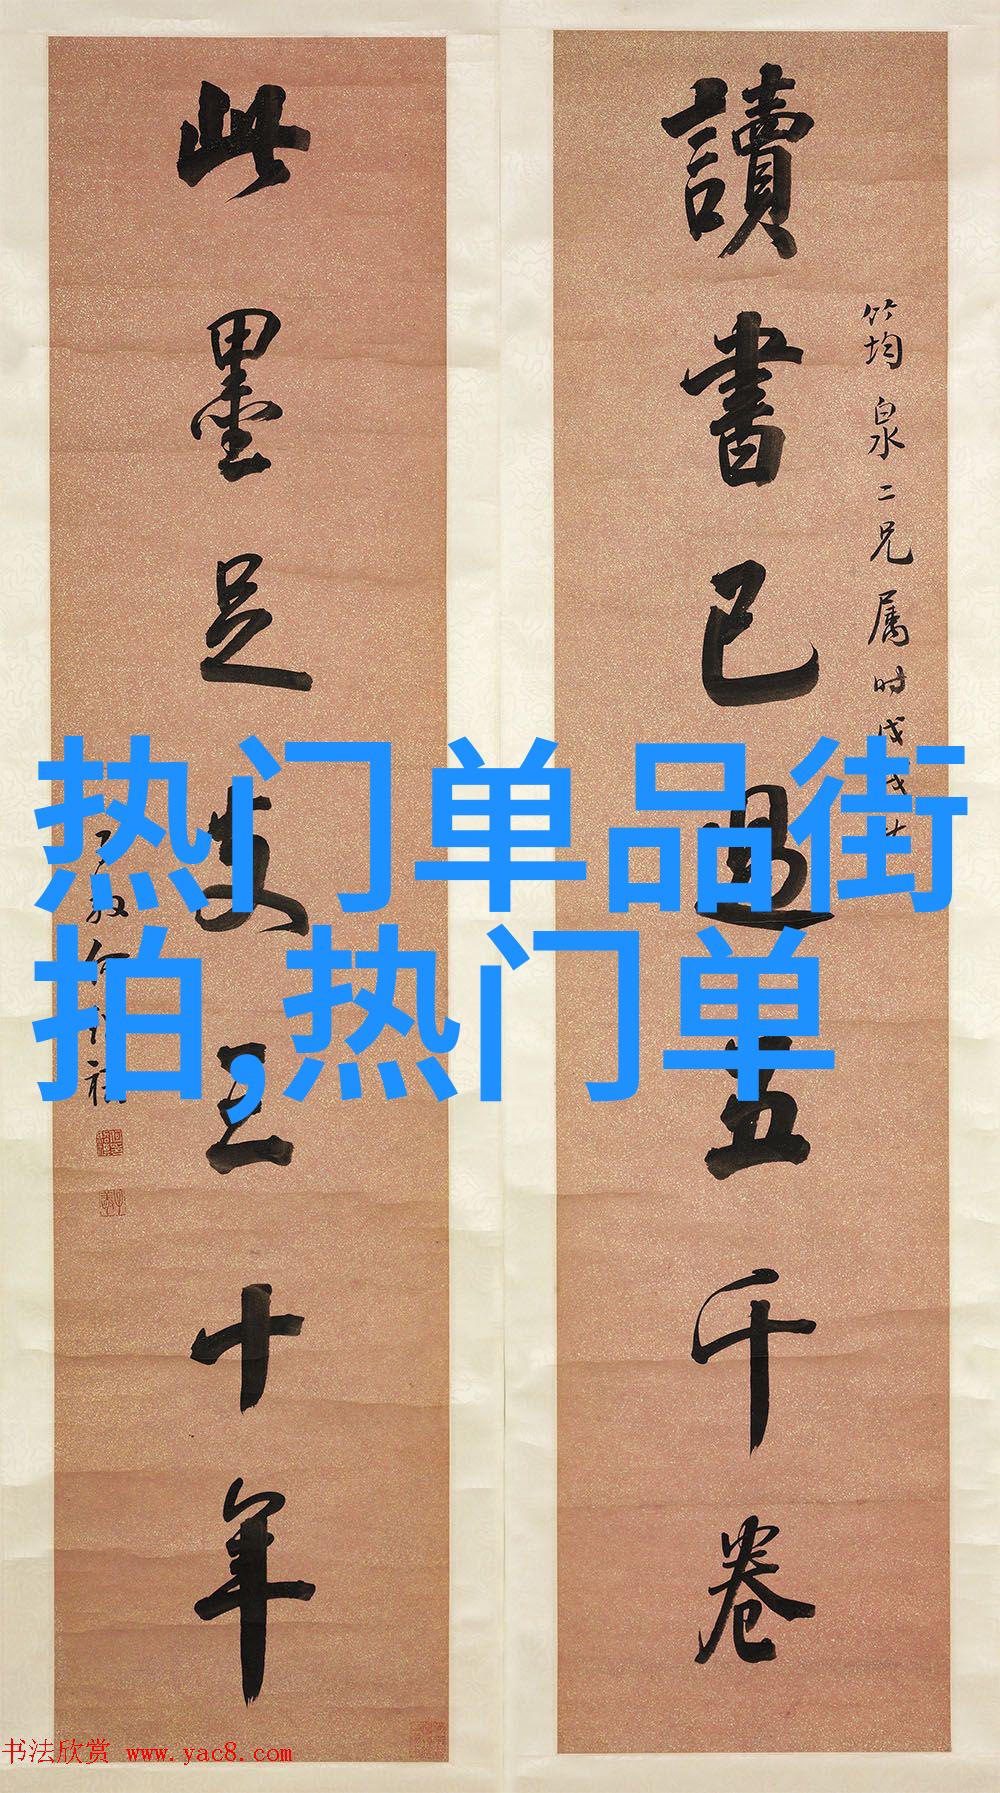 讀書已過五千卷
筠泉二兄属时戊戌
此墨足支三十年
热门单品街
拍,热门单
书法欣赏 www.yac8.com